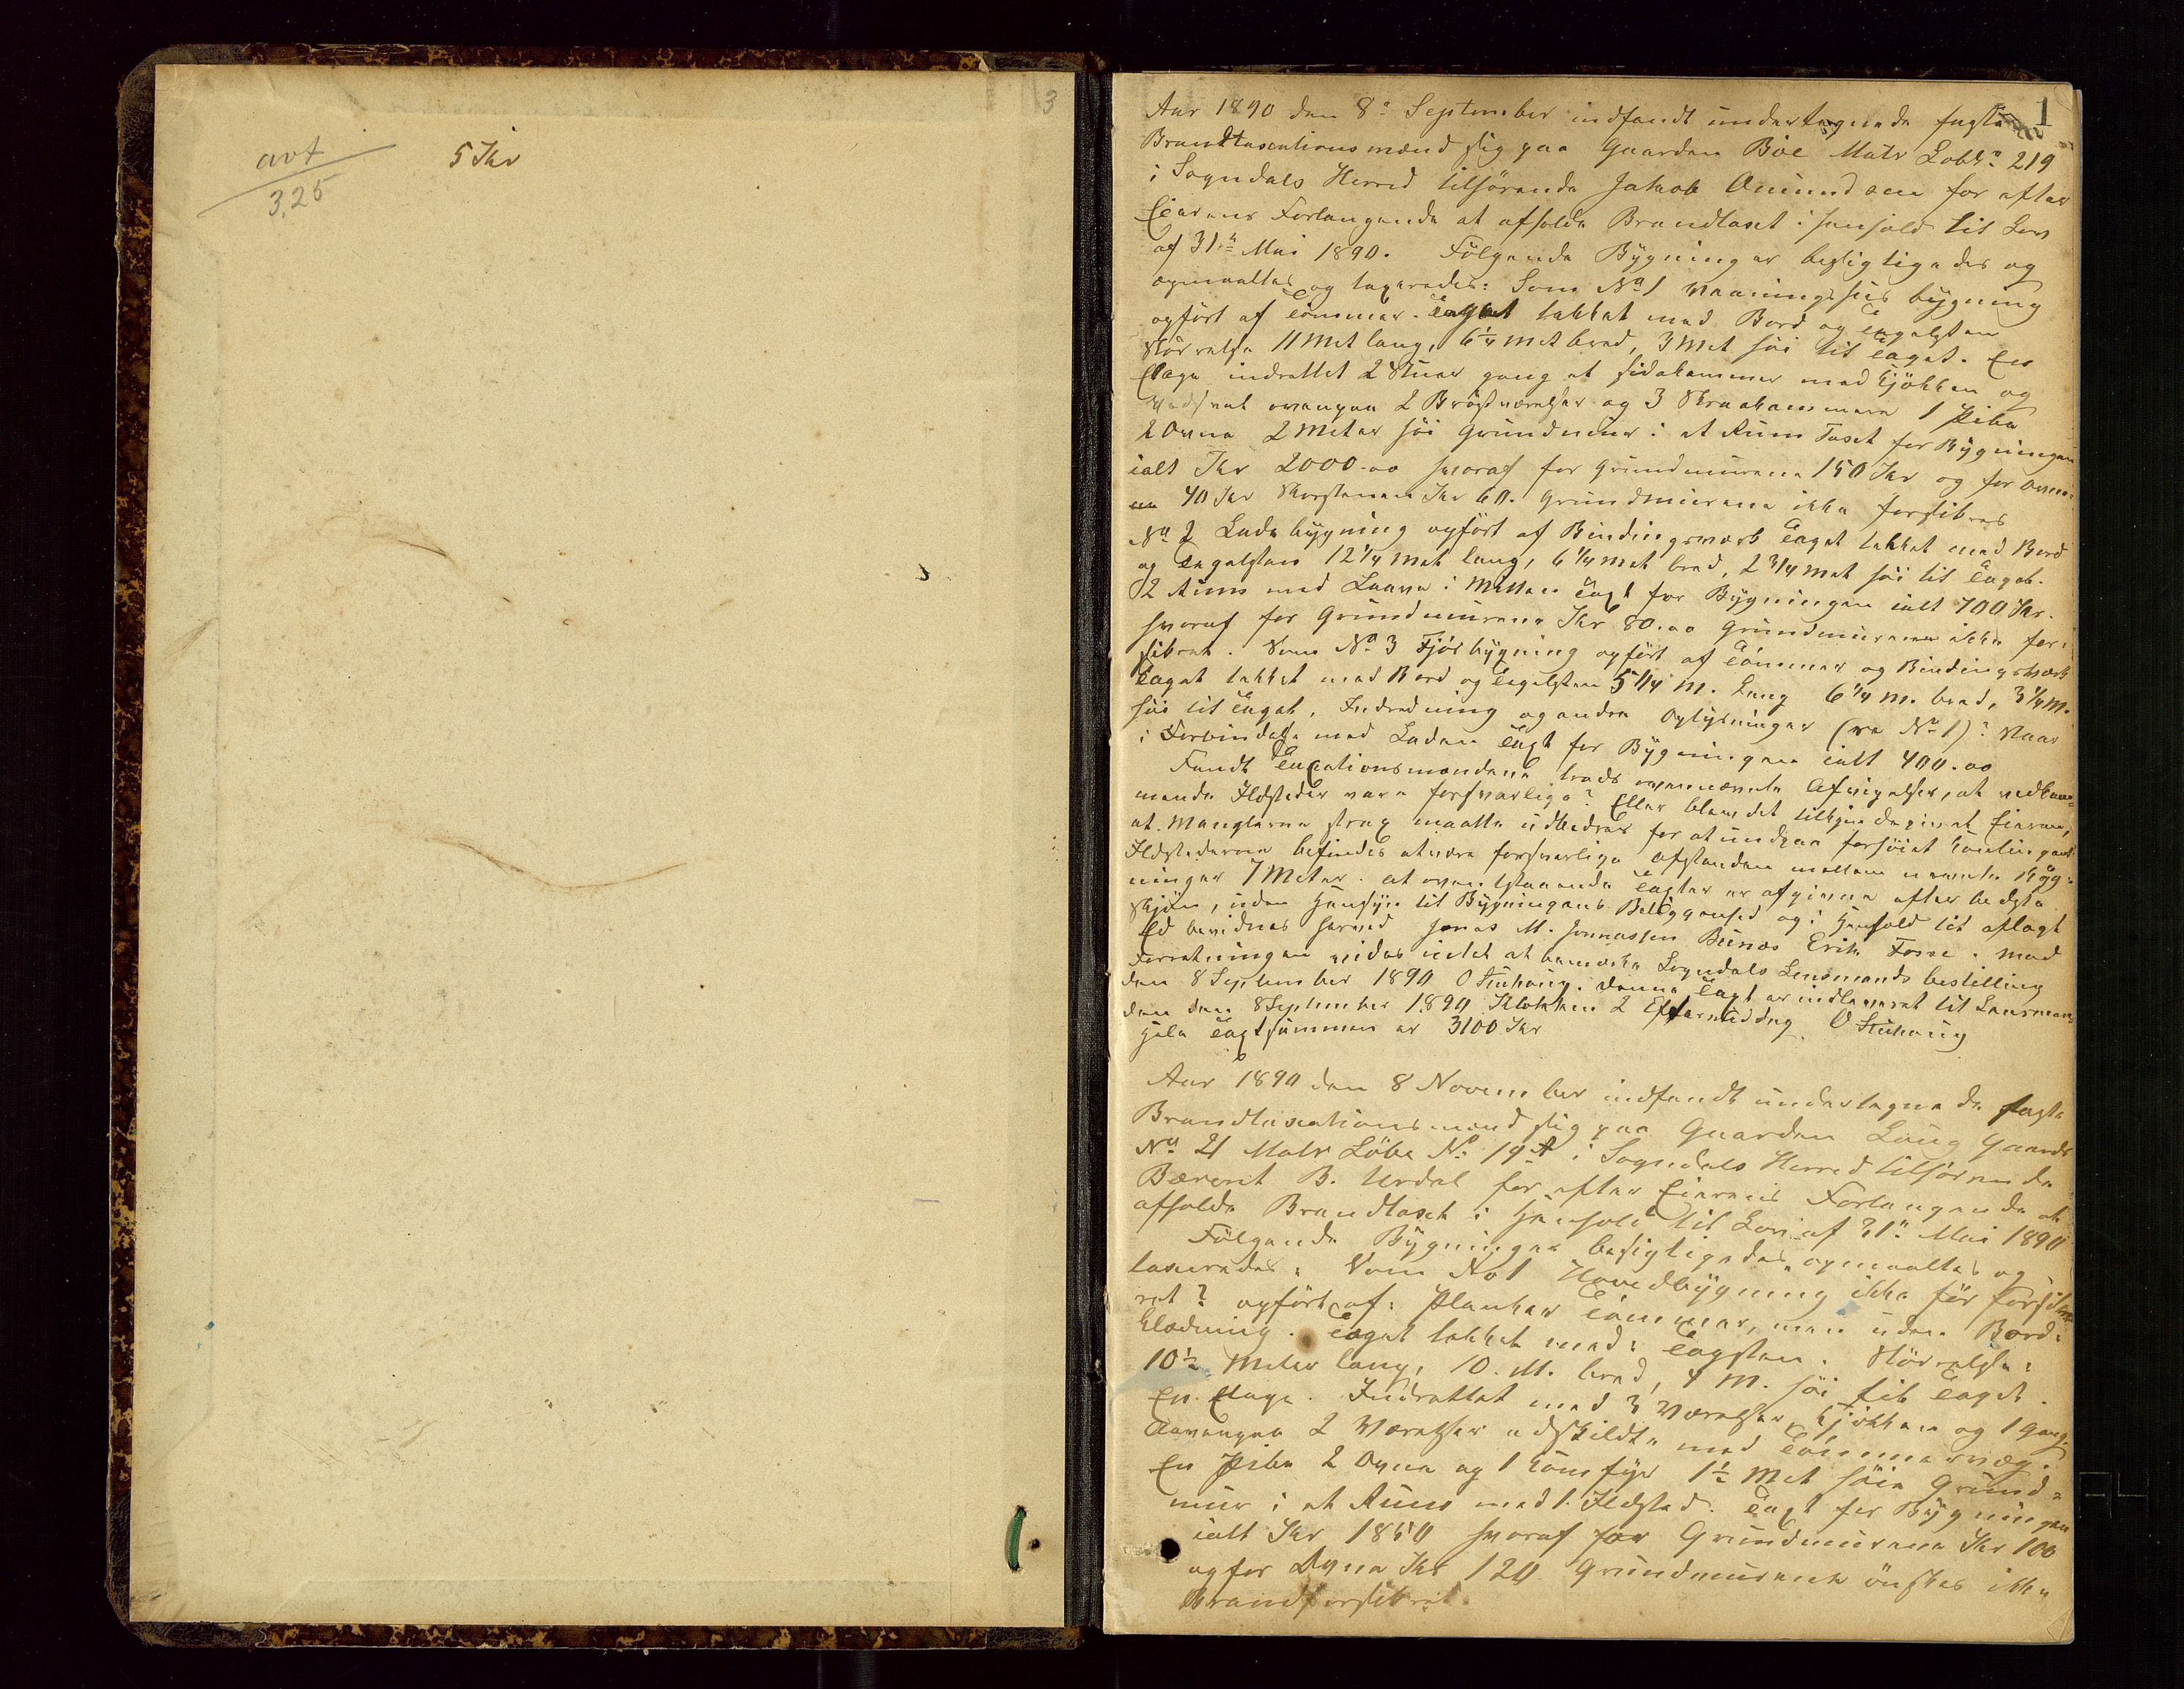 3
avt
3,25
5 Kr
1
Aar 1890 den 8de September indfandt undertegnede faste
Brandtaxationsmænd sig paa Gaarden Böe Matr Löb No 219
i Sogndals Herred tilhörende Jakob Omundsen for efter
Eierens Forlangende at afholde Brandtaxt i henhold til Lov
af 31te Mai 1890. Fölgende Bygninger besigtigedes og
opmaaltes og taxeredes: Som No 1 Vaaningshus bygning
opfört af Tömmer. Taget tækket med Bord og Tegelsten
Störrelse 11 Met lang, 6 1/4 Met bred, 3 Met höi til Taget. En
Etage indrettet 2 Stuer gang et sidekammer med kjökken og
ovenpaa 2 Værelser og 3 Skraakammere 1 Pibe
2 Ovne 2 Meter höi Grundmur i et Rum Taxt for Bygningen
ialt Kr 2000.00 hvoraf for Grundmurene 150 Kr og for Ovne
40 Kr Skorstenen Kr 60. Grundmurene ikke forsikres
No 2 Lade bygning opfört af Bindingsværk Taget tækket med Bord
og Tegelsten 12 1/4 Met lang, 6 1/4 Met bred, 2 3/4 Met höi til Taget.
2 Rum med Laave i Midten Taxt for Bygningen ialt 700 Kr.
hvoraf for Grundmurene Kr 80.00 Grundmurene ikke for-
sikret. Som No 3 Fjös bygning opfört af Tömmer og Bindingsværk
Taget tækket med Bord og Tegelsten 5 1/4 M. Lang 6 1/4 M. bred, 3 1/4 M.
höi til Taget, Indredning og andre Oplysninger (se No 1)? Staar
i Forbindelse med Laden Taxt for Bygningen ialt 400.00
Fandt Taxationsmændene trods ovennævnte Afvigelser, at vedkom-
mende Ildsteder vare forsvarlige? Eller blev det tilkjendegivet Eieren,
at Manglerne strax maatte udbedres for at undgaa forhöiet
Ildstederne befindes at være forsvarlige Afstanden mellem nævnte Byg-
ninger 7 Meter. At ovenstaaende Taxter er afgivne efter bedste
Skjön, uden Hensyn til Bygningens Beliggenhed og i Henhold til aflagt
Ed bevidnes herved Jonas M. Jonnassen Bunæs Erik Fosse. Mod
Forretningen vides intet at bemærke Sogndals Lensmands bestilling
den 8 September 1890 O Stuhaug. Denne Taxt er indleveret til Lensman-
den den 8 September 1890 Klokken 2 Eftermiddag. O Stuhaug
Hele Taxtsummen er 3100 Kr
Aar 1890 den 8 November indfandt undertegnede faste
Brandtaxationsmænd sig paa Gaarden Laug Gaards
No 21 Matr Löbe No 19A i Sogndals Herred tilhörende
B. Urdal for efter Eierens Forlangende at
afholde Brandtaxt i Henhold til Lov af 31te Mai 1890
Fölgende Bygninger besigtigedes, opmaaltes og
taxeredes: Som No 1 Hovedbygning ikke för forsik-
ret? opfört af: Planker Tömmer, men uden Bord-
klædning. Taget tækket med: Tagsten. Störrelse:
10 1/2 Meter lang, 10. M. bred, 4 M. höi til Taget.
En Etage. Indrettet med 3 Værelser, kjökken og 1 gang.
Ovenpaa 2 Værelser adskildte med Tömmervæg.
En Pibe 2 Ovne og 1 komfyr 1 1/2 Met höie Grund-
mur i et Rum med 1 Ildsted. Taxt for Bygningen
ialt Kr 1850 hvoraf for Grundmurene Kr 100
og for Ovne Kr 120. Grundmurene önskes ikke
Brandforsikret.